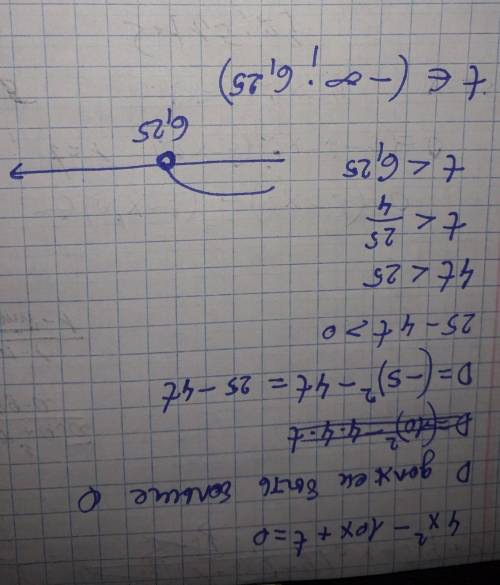 4x² - 10x + t = 0
D должен быть больше 0
D = (-10)² - 4·4·t
D = (-5)² - 4t = 25 - 4t
25 - 4t > 0
4t < 25
t < 25/4
t < 6,25
6,25
t ∈ (-∞; 6,25)